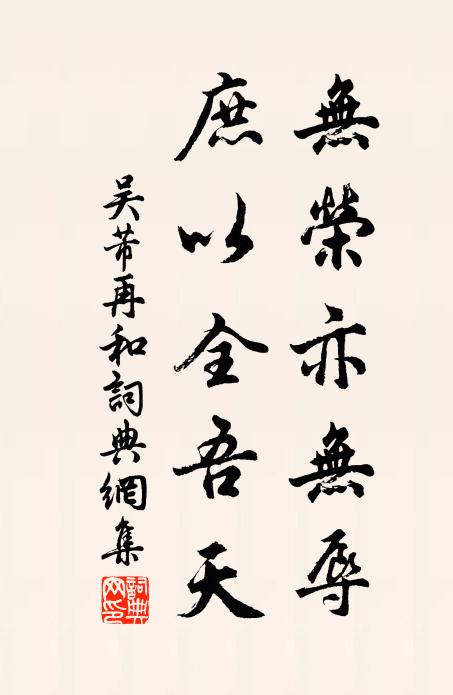 無榮亦無辱
庶以全吾天
吴芾再和詞典網集
詞典网印